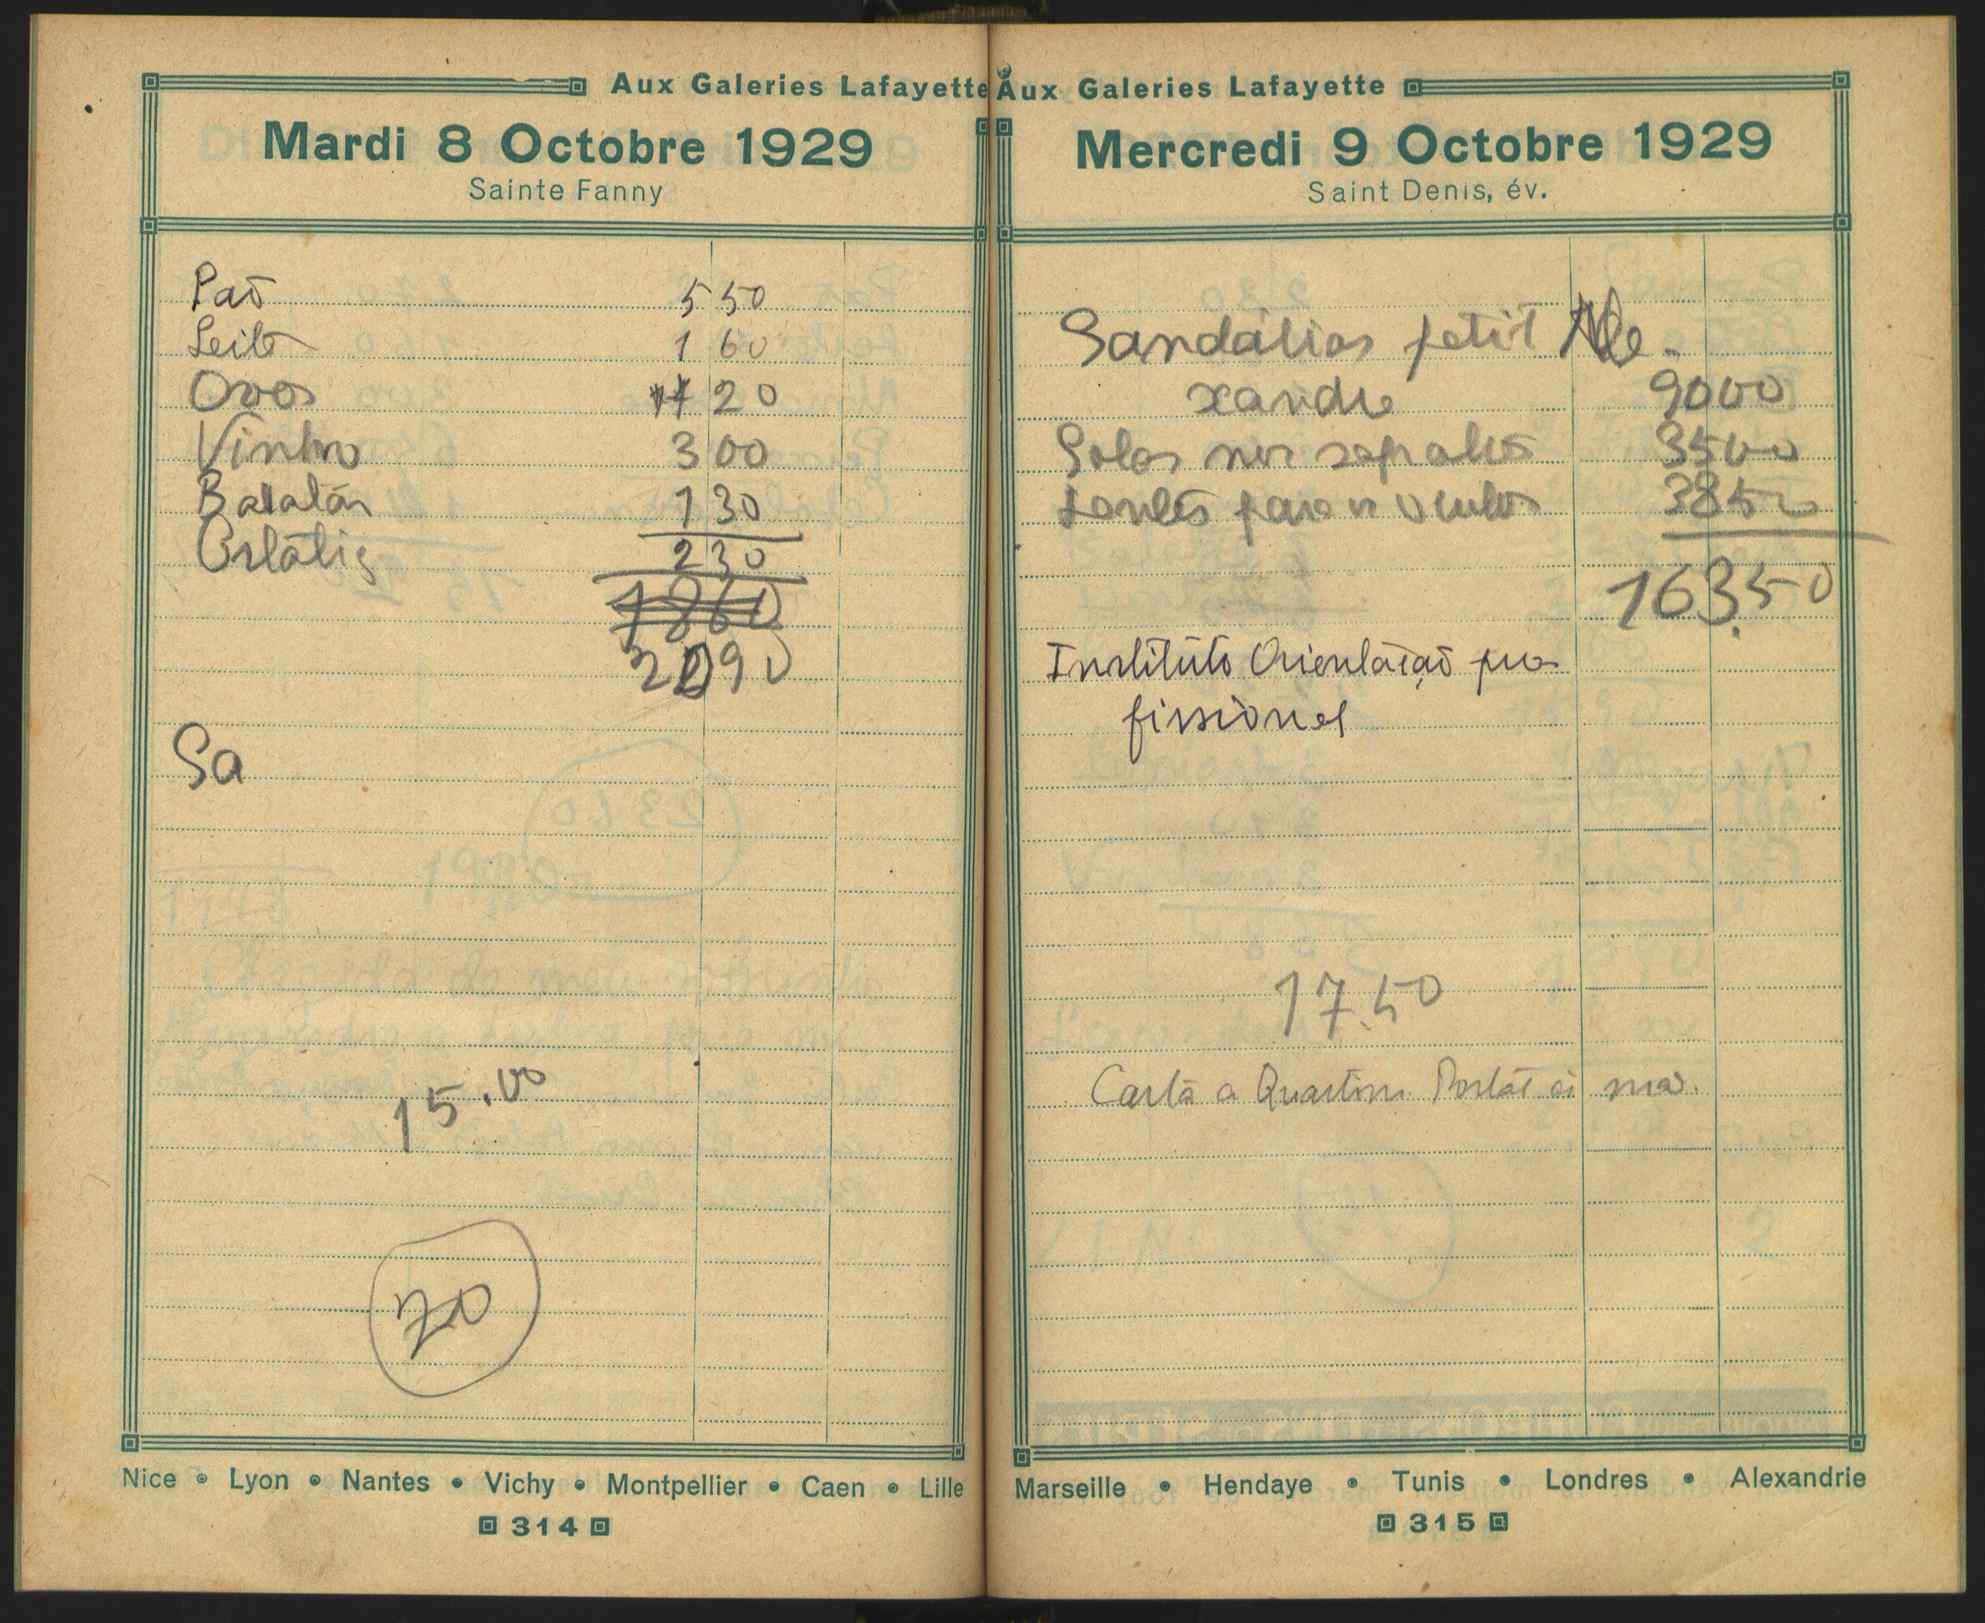 Aux Galeries Lafayette
Mardi 8 Octobre 1929
Sainte Fanny
Paõ 5 50
Leite 1 60
Ovos 20
Vinho 3 00
Batatas 1 30
2 30
1860
2090
Sa
15.00
70
Nice • Lyon • Nantes • Vichy • Montpellier • Caen • Lille
314
Aux Galeries Lafayette
Mercredi 9 Octobre 1929
Saint Denis, év.
Sandálias petit Ale-
xandre 9000
Solas nos sapatos 3500
para os oculos 3850
163.50
Instituto Orientaçaõ pro
fissional
17.50
Carta a
Marseille • Hendaye • Tunis • Londres • Alexandrie
315